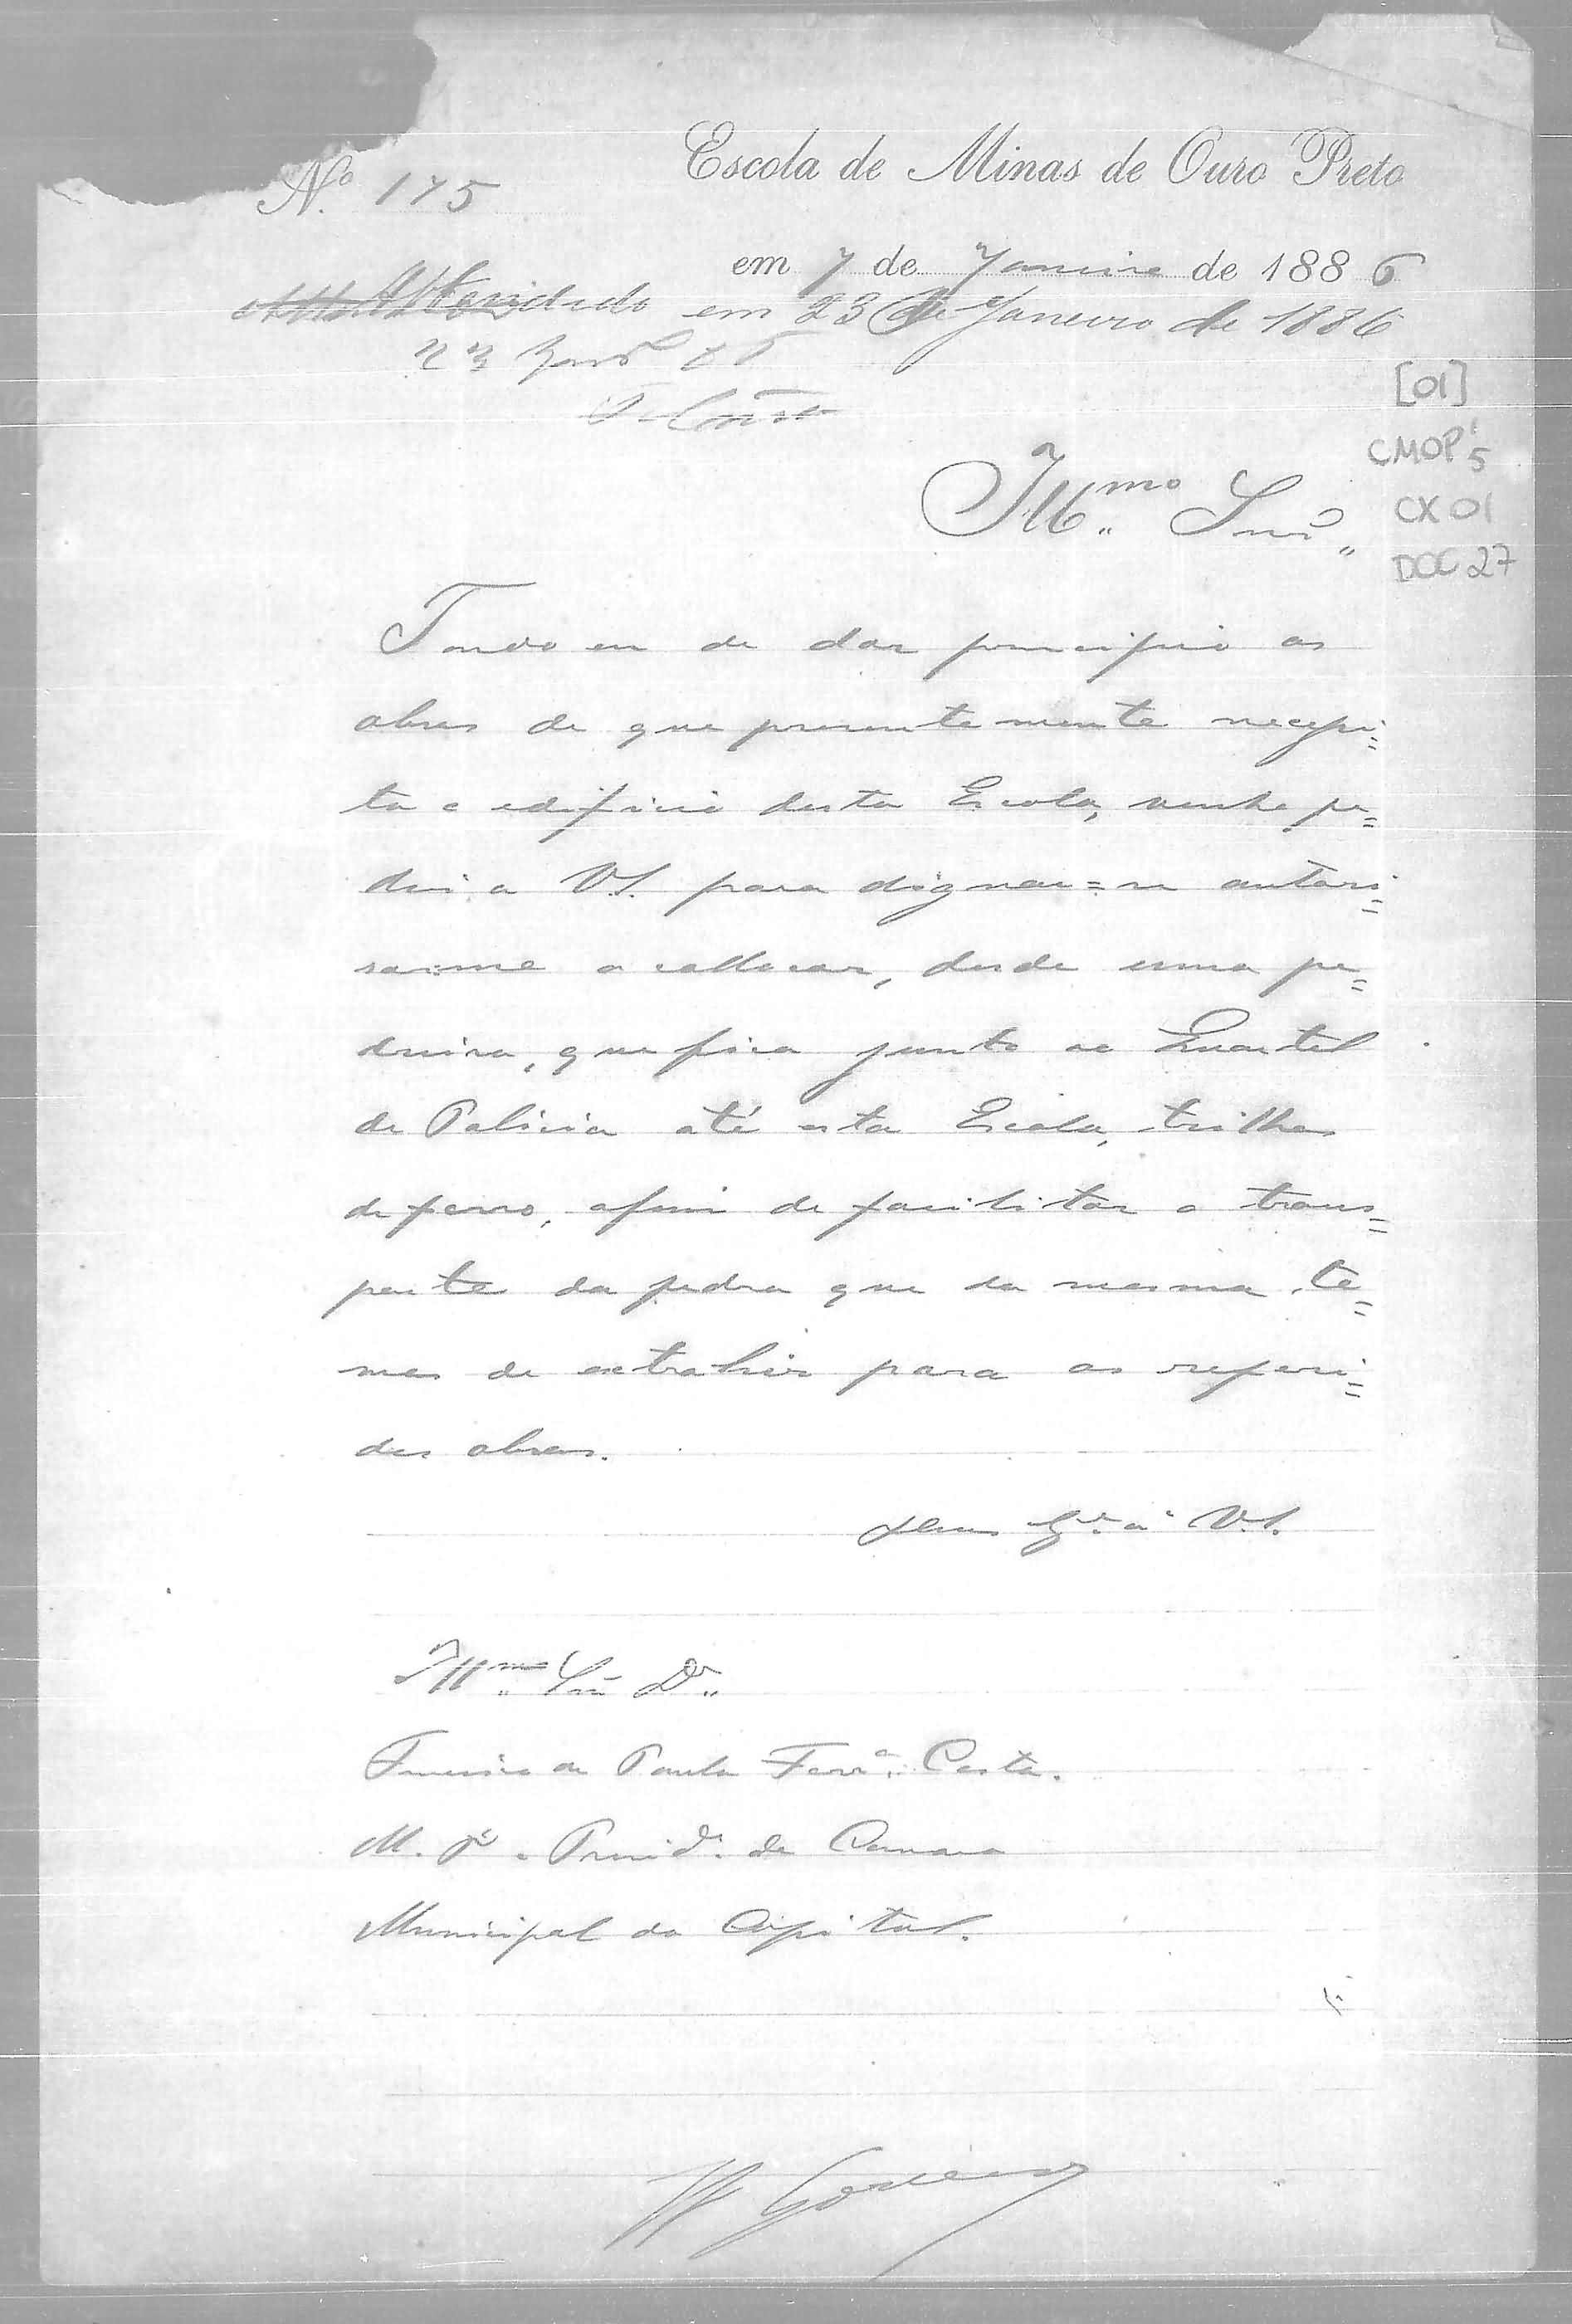 Escola de Minas de Ouro Preto
Nº 175
em 7 de Janeiro de 1886
Attendido em 23 de Janeiro de 1886
[01]
CMOP
5
CX 01
DOC 27
Illmo Snr
Tendo eu de dar principio as
obras de que presentemente necessi=
ta o edificio desta Escola, venho pe=
dir a V.S. para dignar=se autori=
sar-me a collocar, desde uma pe=
dreira, que fica junto ao Quartel
de Policia até esta Escola, trilhos
de ferro, afim de facilitar o trans=
porte da pedra que da mesma te=
mos de extrahir para as referi=
das obras.
Deus Gde a V.S.
Illmo Snr Dr
Francisco de Paula Ferra Costa.
M. D. Presid. da Camara
Municipal da Capital.
H Gorceix